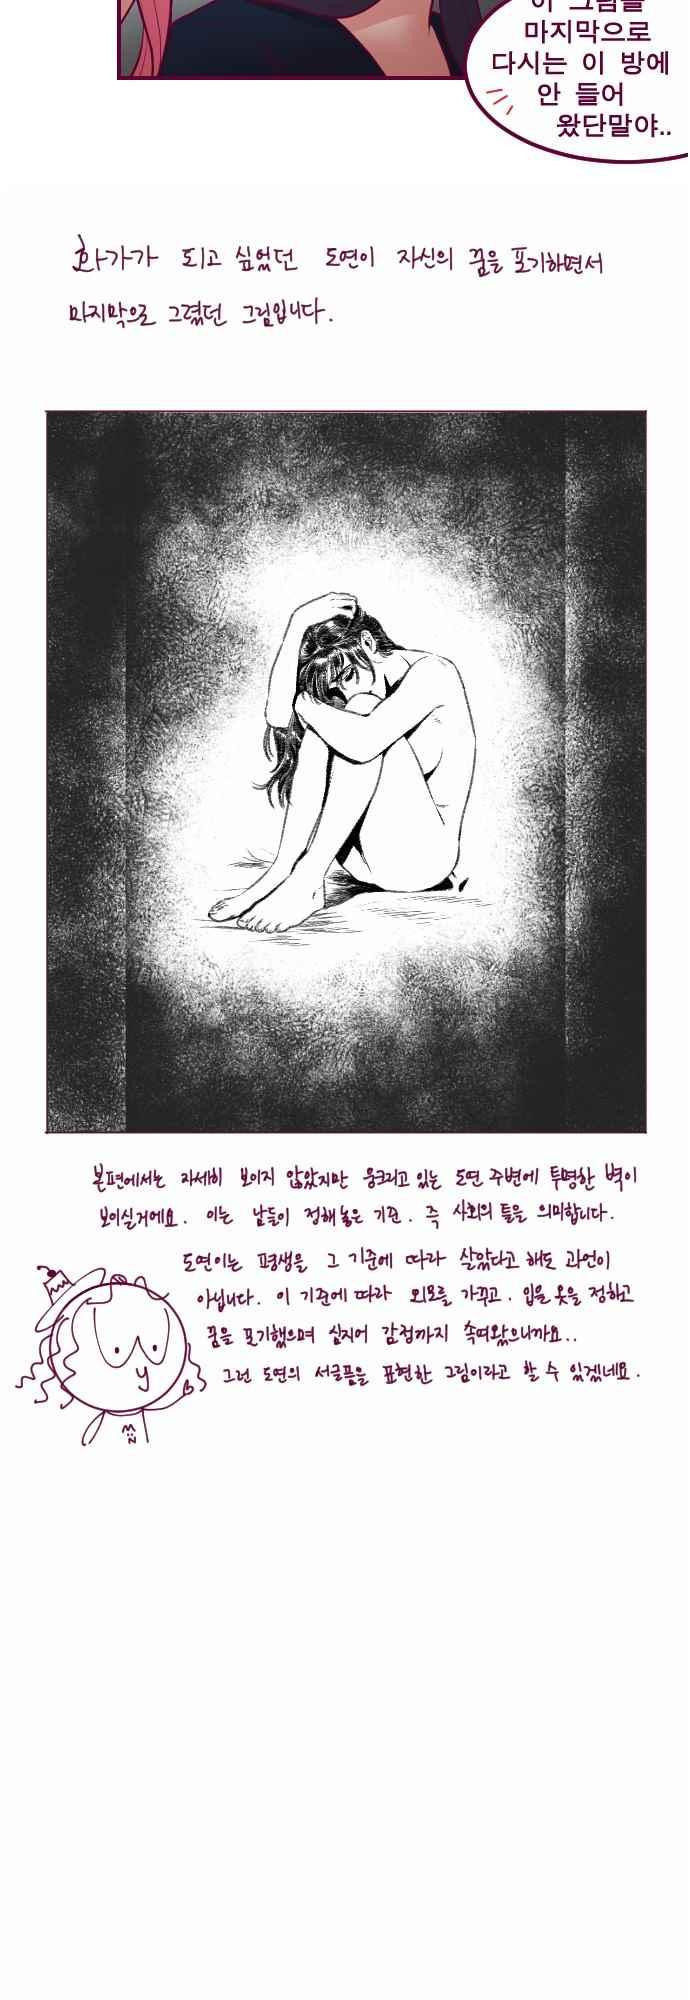 이 그림을
마지막으로
다시는 이 방에
안 들어
왔단말야..
화가가 되고 싶었던 도연이 자신의 꿈을 포기하면서
마지막으로 그렸던 그림입니다.
본편에서는 자세히 보이지 않았지만 웅크리고 있는 도연 주변에 투명한 벽이
보이실거에요. 이는 남들이 정해놓은 기준. 즉 사회의 틀을 의미합니다.
도연이는 평생을 그 기준에 따라 살았다고 해도 과언이
아닙니다. 이 기준에 따라 외모를 가꾸고. 입을 옷을 정하고
꿈을 포기했으며 심지어 감정까지 속여왔으니까요..
그런 도연의 서글픔을 표현한 그림이라고 할 수 있겠네요.